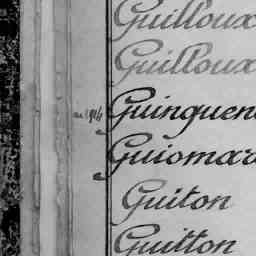 Guilloux
Guilloux
1914 Guinguen
Guiomar
Guiton
Guitton